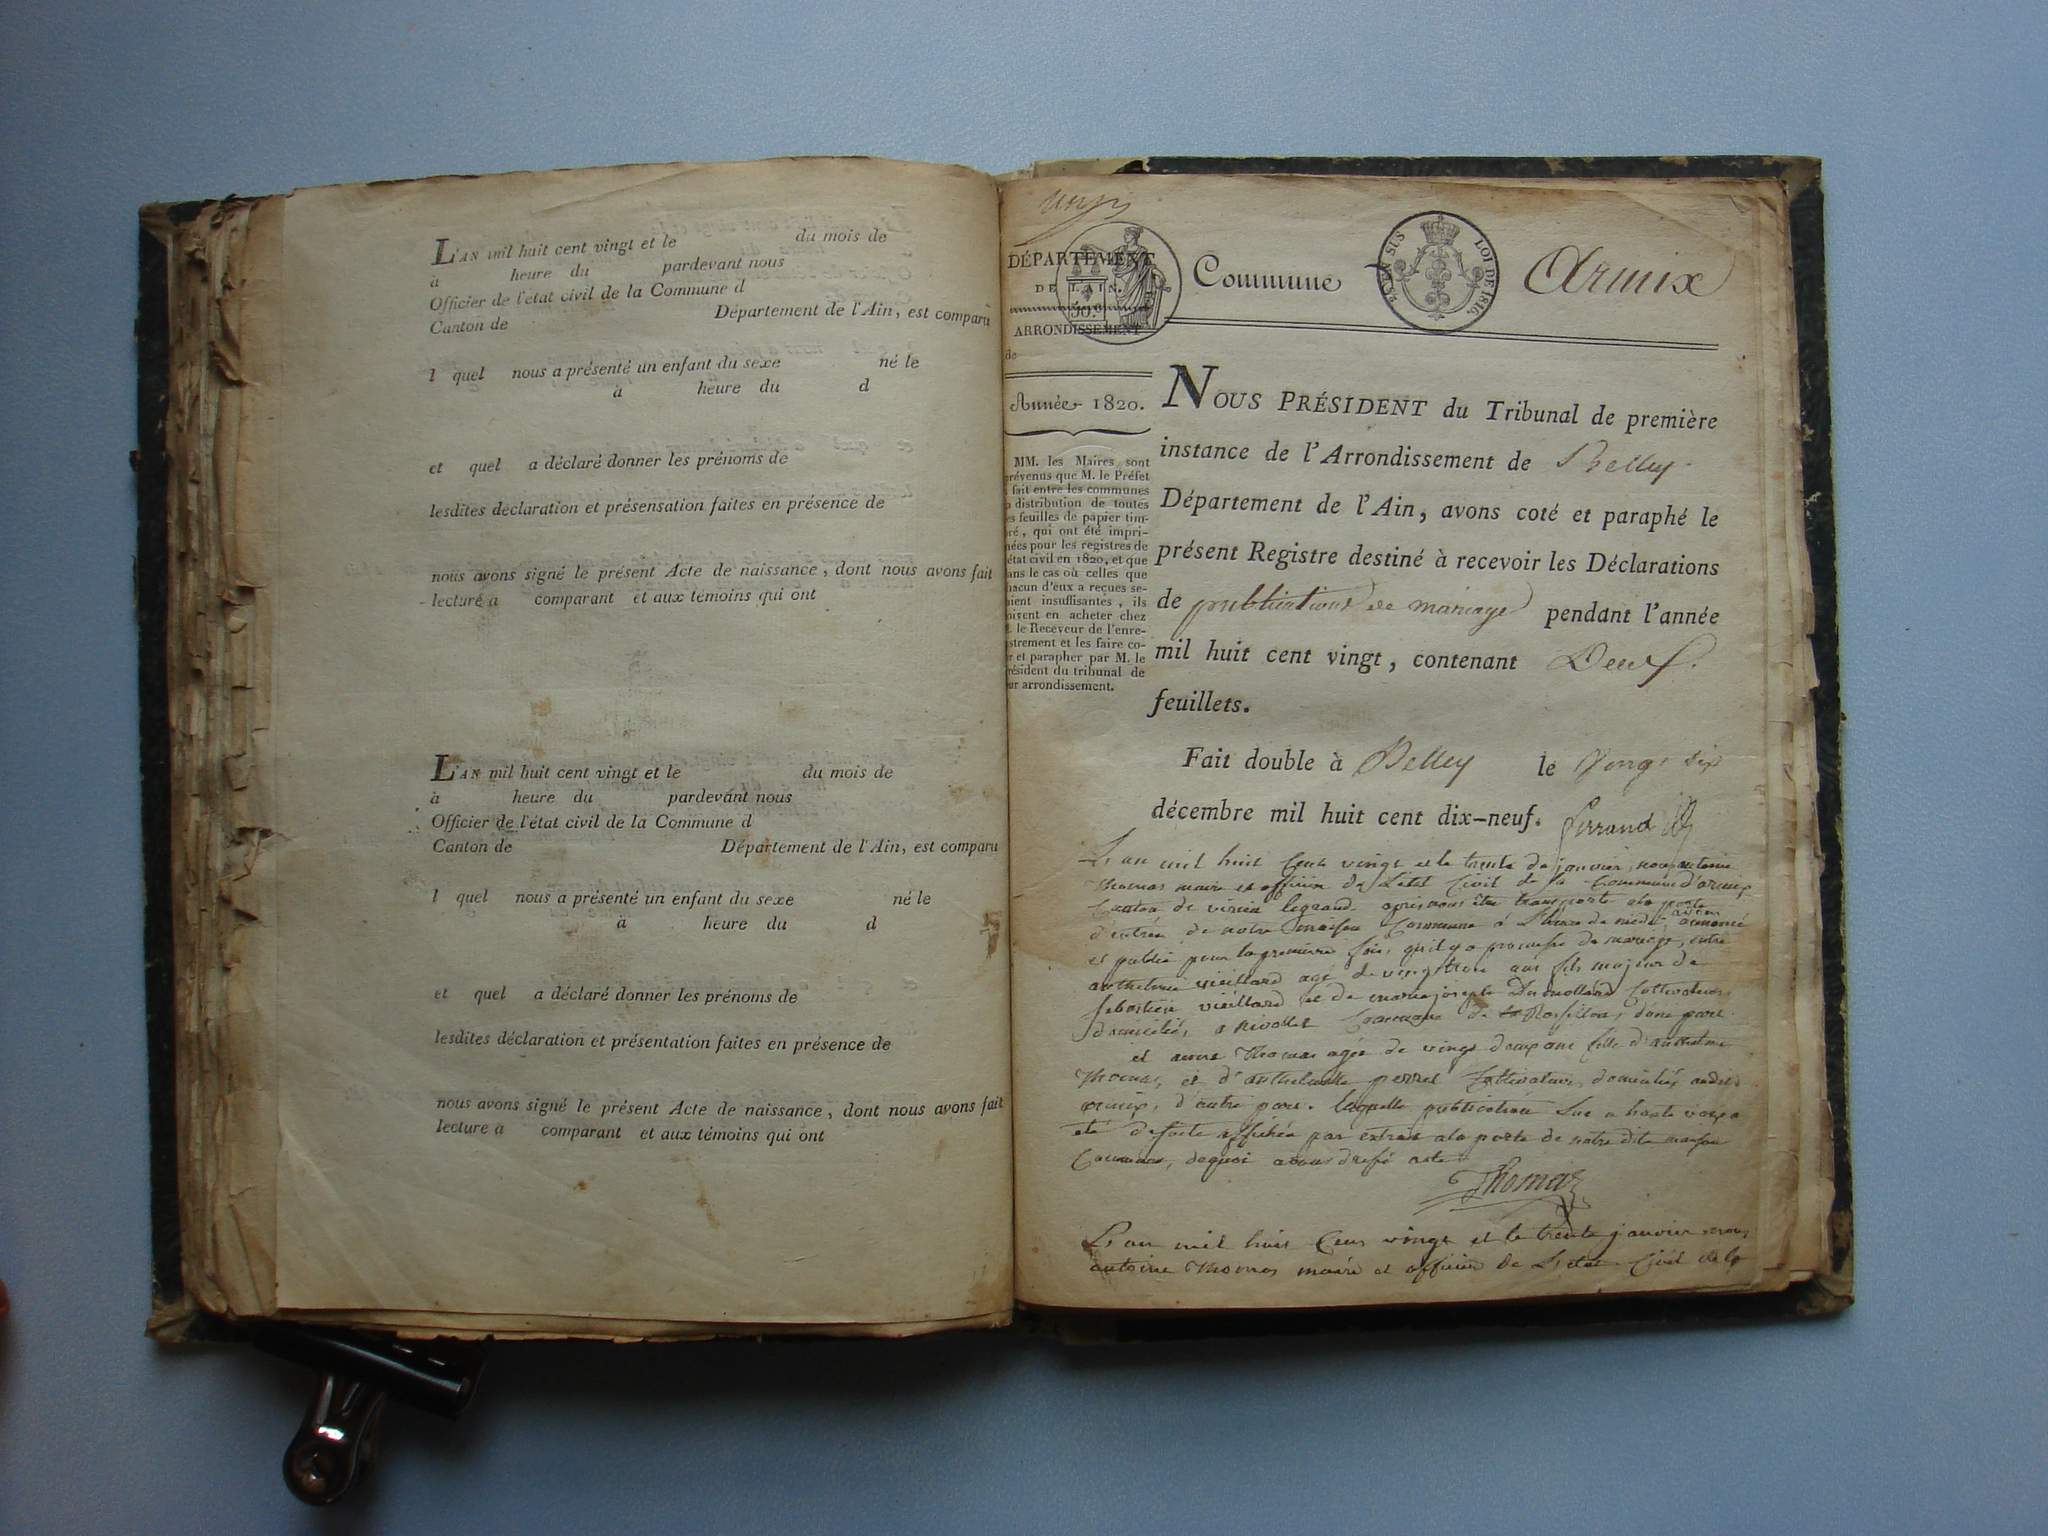 L'AN mil huit cent vingt et le du mois de
à heure du pardevant nous
Officier de l'état civil de la Commune d
Canton de Département de l'Ain, est comparu
l quel nous a présenté un enfant du sexe né le
à heure du d
et quel a déclaré donner les prénoms de
lesdites déclaration et présensation faites en présence de
nous avons signé le présent Acte de naissance, dont nous avons fait
lecture a comparant et aux témoins qui ont
L'AN mil huit cent vingt et le du mois de
à heure du pardevant nous
Officier de l'état civil de la Commune d
Canton de Département de l'Ain, est comparu
l quel nous a présenté un enfant du sexe né le
à heure du d
et quel a déclaré donner les prénoms de
lesdites déclaration et présentation faites en présence de
nous avons signé le présent Acte de naissance, dont nous avons fait
lecture a comparant et aux témoins qui ont
DÉPARTEMENT
DE L'AIN.
50.c
ARRONDISSEMENT
de
Année 1820.
MM. les Maires sont
révenus que M. le Préfet
fait entre les communes
a distribution de toutes
es feuilles de papier tim-
ré, qui ont été impri-
mées pour les registres de
état civil en 1820, et que
ans le cas où celles que
hacun d'eux a reçues se-
aient insuffisantes, ils
oivent en acheter chez
le Receveur de l'enre-
istrement et les faire co-
r et parapher par M. le
résident du tribunal de
ur arrondissement.
Commune Armix
SUS LOI DE 1816.
NOUS PRÉSIDENT du Tribunal de première
instance de l'Arrondissement de Belley
Département de l'Ain, avons coté et paraphé le
présent Registre destiné à recevoir les Déclarations
de publications de mariage pendant l'année
mil huit cent vingt, contenant Deux
feuillets.
Fait double à Belley le Vingt six
décembre mil huit cent dix-neuf.
L'an mil huit Cent vingt et le trente de janvier, nous antoine
Thomas maire et officier de L'etat Civil de la Commune d'armix
Canton de virieu legrand. après nous être transporté a la porte
d'entrée de notre maison Commune à L'heure de midi, avons annoncé
et publié pour la premiere fois, qu'il y a promesse de mariage, entre
anthelme vieillard agé de vingt trois ans fils majeur de
sebastien vieillard et de marie josephe Dumollard Cultivateurs
domiciliés, a Rivollet Commune de Rossillon, d'une part
et Thomas agée de vingt deux ans fille d'anthelme
Thomas, et d'anthelmette perret Cultivateurs, domiciliés audit
armix, d'autre part. laquelle publication Lue a haute voix a
eté de suite affichée par extrait a la porte de notre dite maison
Commune, de quoi avons dressé acte
Thomas
L'an mil huit Cent vingt et le trente janvier nous
antoine Thomas maire et officier de L'etat Civil de la